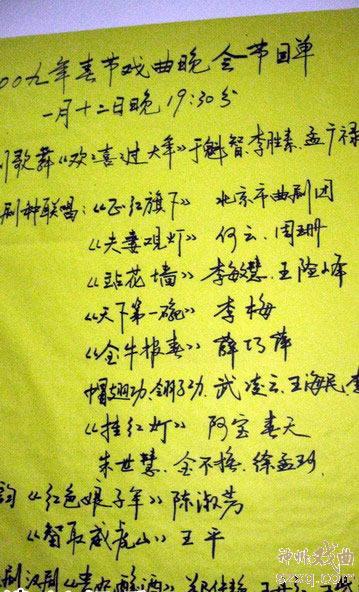 00九年春节戏曲晚会节目单
一月十二日晚 19:30分
歌舞《欢欢喜喜过大年》于魁智、李胜素、孟广禄
剧种联唱:《正红旗下》 北京市曲剧团
《夫妻观灯》 何云、周珊
《站花墙》 李敏慧、王险峰
《天下第一碗》 李梅
《金牛报春》 薛巧萍
帽翅功、翎子功、武凌云、王海民、
《挂红灯》 阿宝 春天
朱世慧、金不换、徐孟珂
韵《红色娘子军》陈淑芳
《智取威虎山》王平
剧汉剧《
神州戏曲
szxq.com